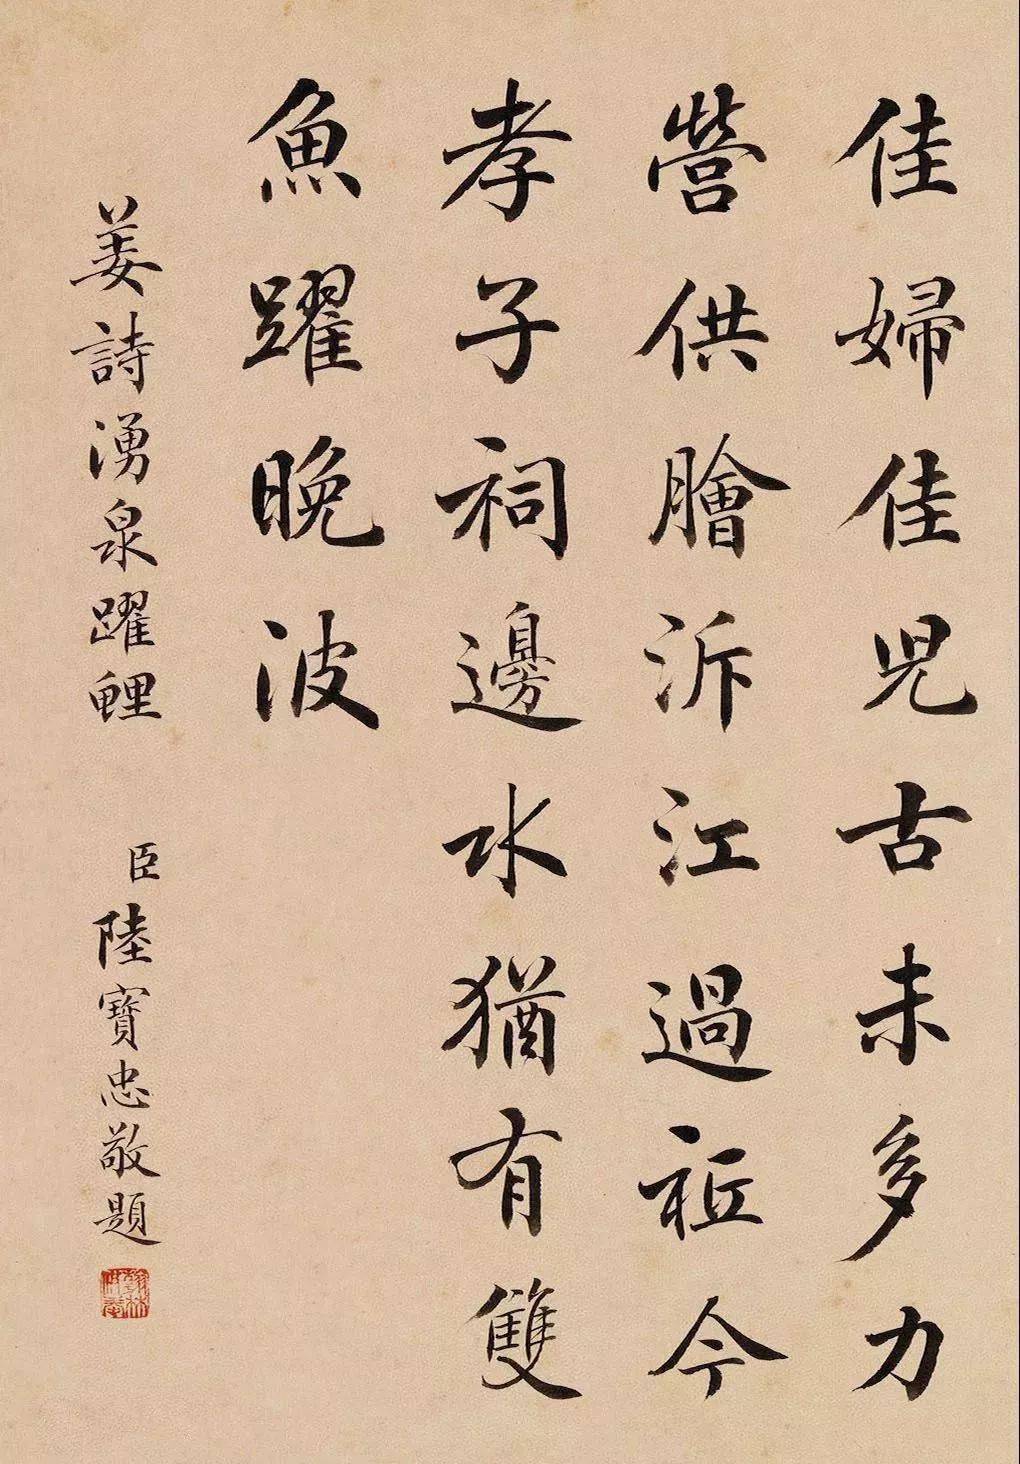 佳婦佳児古未多力
營供膾泝江過祗今
孝子祠邊水猶有雙
魚躍晚波
姜詩湧泉躍鯉 臣陸寶忠敬題
翰林供奉